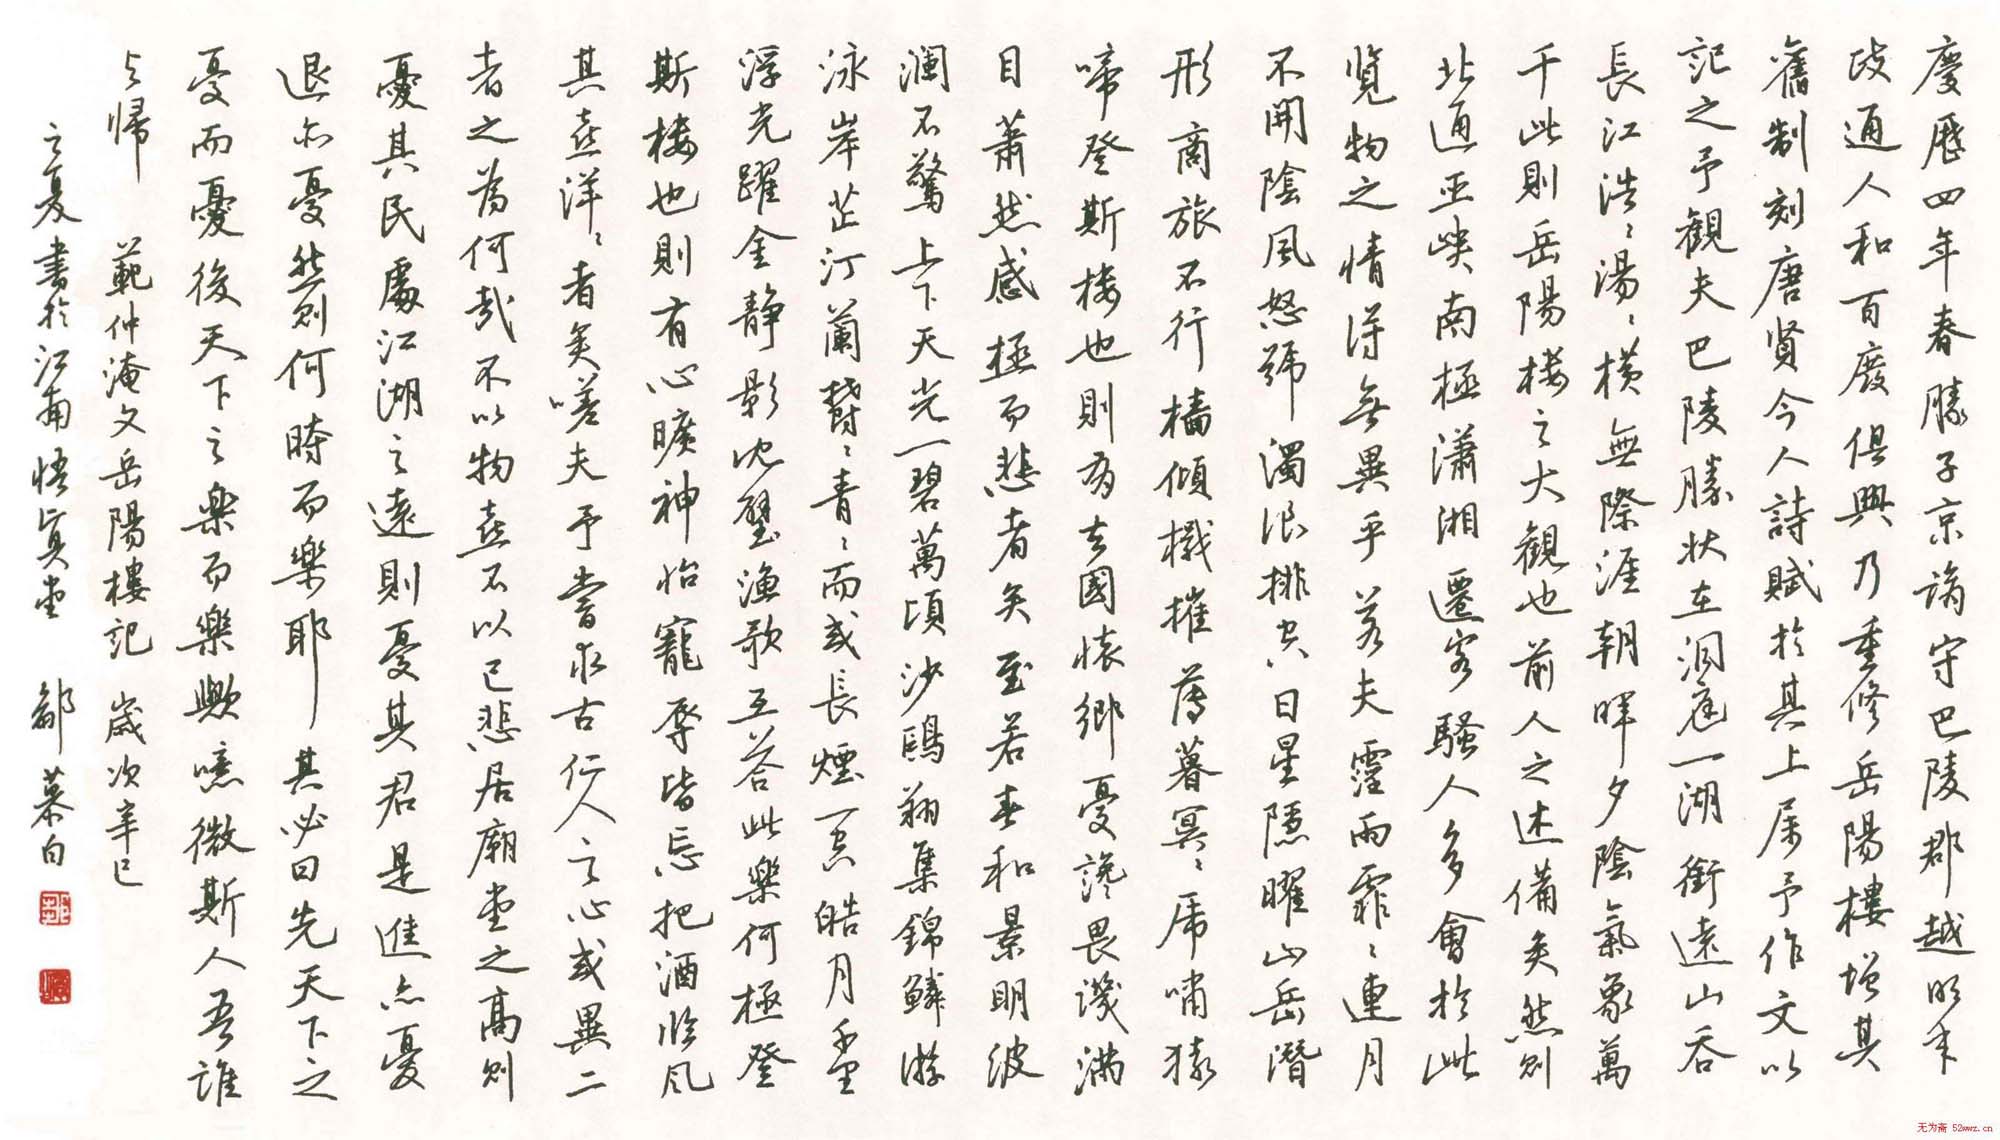 慶歷四年春滕子京謫守巴陵郡越明年
政通人和百廢俱興乃重修岳陽樓增其
舊制刻唐賢今人詩賦於其上屬予作文以
記之予觀夫巴陵勝狀在洞庭一湖銜遠山吞
長江浩〻湯〻橫無際涯朝暉夕陰氣象萬
千此則岳陽楼之大觀也前人之述備矣然則
北通巫峽南極瀟湘遷客騷人多會於此
覽物之情得無異乎若夫霪雨霏〻連月
不開陰風怒號濁浪排空日星隱曜山岳潛
形商旅不行檣傾檝摧薄暮冥〻虎嘯猿
啼登斯楼也則有去國懷鄉憂讒畏譏滿
目蕭然感極而悲者矣至若春和景明波
瀾不驚上下天光一碧萬頃沙鷗翔集錦鱗游
泳岸芷汀蘭鬱〻青〻而或長煙一空皓月千里
浮光躍金靜影沈璧漁歌互答此樂何極登
斯楼也則有心曠神怡寵辱皆忘把酒臨風
其喜洋〻者矣嗟夫予嘗求古仁人之心或異二
者之為何哉不以物喜不以己悲居廟堂之高則
憂其民處江湖之遠則憂其君是進亦憂
退亦憂然則何時而樂耶其必曰先天下之
憂而憂後天下之樂而樂歟噫微斯人吾誰
与歸 範仲淹文岳陽樓記 歲次辛巳
之夏書於江南悟真堂 鄒慕白
无为斋 52wwz.cn